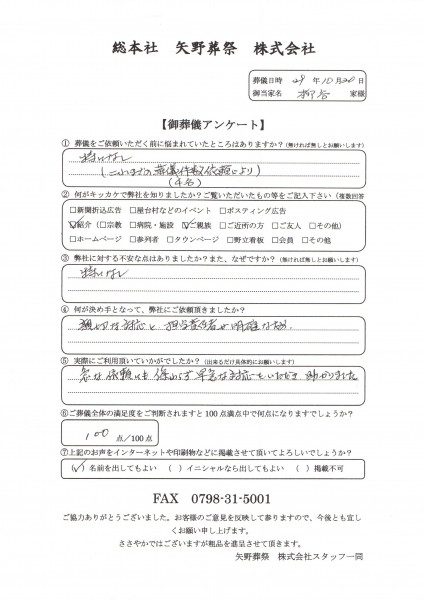 総本社 矢野葬祭 株式会社
葬儀日時 29 年 10 月 20 日
御当家名 柳谷 家様
【御葬儀アンケート】
① 葬儀をご依頼いただく前に悩まれていたところはありますか?(無ければ無しとお願いします)
特になし
(これまでの葬儀件数依頼により)
(4名)
② 何がキッカケで弊社を知りましたか?ご覧いただいたもの等をご記入下さい(複数回答
□新聞折込広告 □屋台村などのイベント □ポスティング広告
☑紹介(□宗教 □病院・施設 ☑ご親族 □ご近所の方 □ご友人 □その他)
□ホームページ □参列者 □タウンページ □野立看板 □会員 □その他
③ 弊社に対する不安な点はありましたか?また、なぜですか?(無ければ無しとお願いします)
特になし
④ 何が決め手となって、弊社にご依頼頂きましたか?
親切な対応と 担当責任者が明確な為.
⑤ 実際にご利用頂いていかがでしたか?(出来るだけ具体的にお願いします)
急な依頼にも係わらず 早急な対応をいただき 助かりました
⑥ご葬儀全体の満足度をご判断されますと 100 点満点中で何点になりますでしょうか?
100 点/100点
⑦上記のお声をインターネットや印刷物などに掲載させて頂いてよろしいでしょうか?
(✓)名前を出してもよい ( )イニシャルなら出してもよい ( )掲載不可
FAX 0798-31-5001
ご協力ありがとうございました。お客様のご意見を反映して参りますので、今後とも宜し
くお願い申し上げます。
ささやかではございますが粗品を進呈させて頂きます。
矢野葬祭 株式会社スタッフ一同